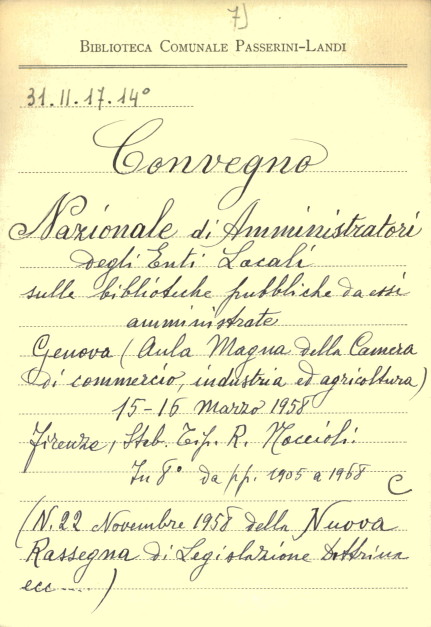 7)
BIBLIOTECA COMUNALE PASSERINI-LANDI
31.II.17.14°
Convegno
Nazionale di Amministratori
degli Enti Locali
sulle biblioteche pubbliche da essi
amministrate
Genova (Aula Magna della Camera
di commercio, industria ed agricoltura)
15-16 Marzo 1958
Firenze, Stab. Tip. R. Noccioli.
In 8° da pp. 1905 a 1968
C
(N. 22 Novembre 1958 della Nuova
Rassegna di Legislazione Dottrina
ecc....)